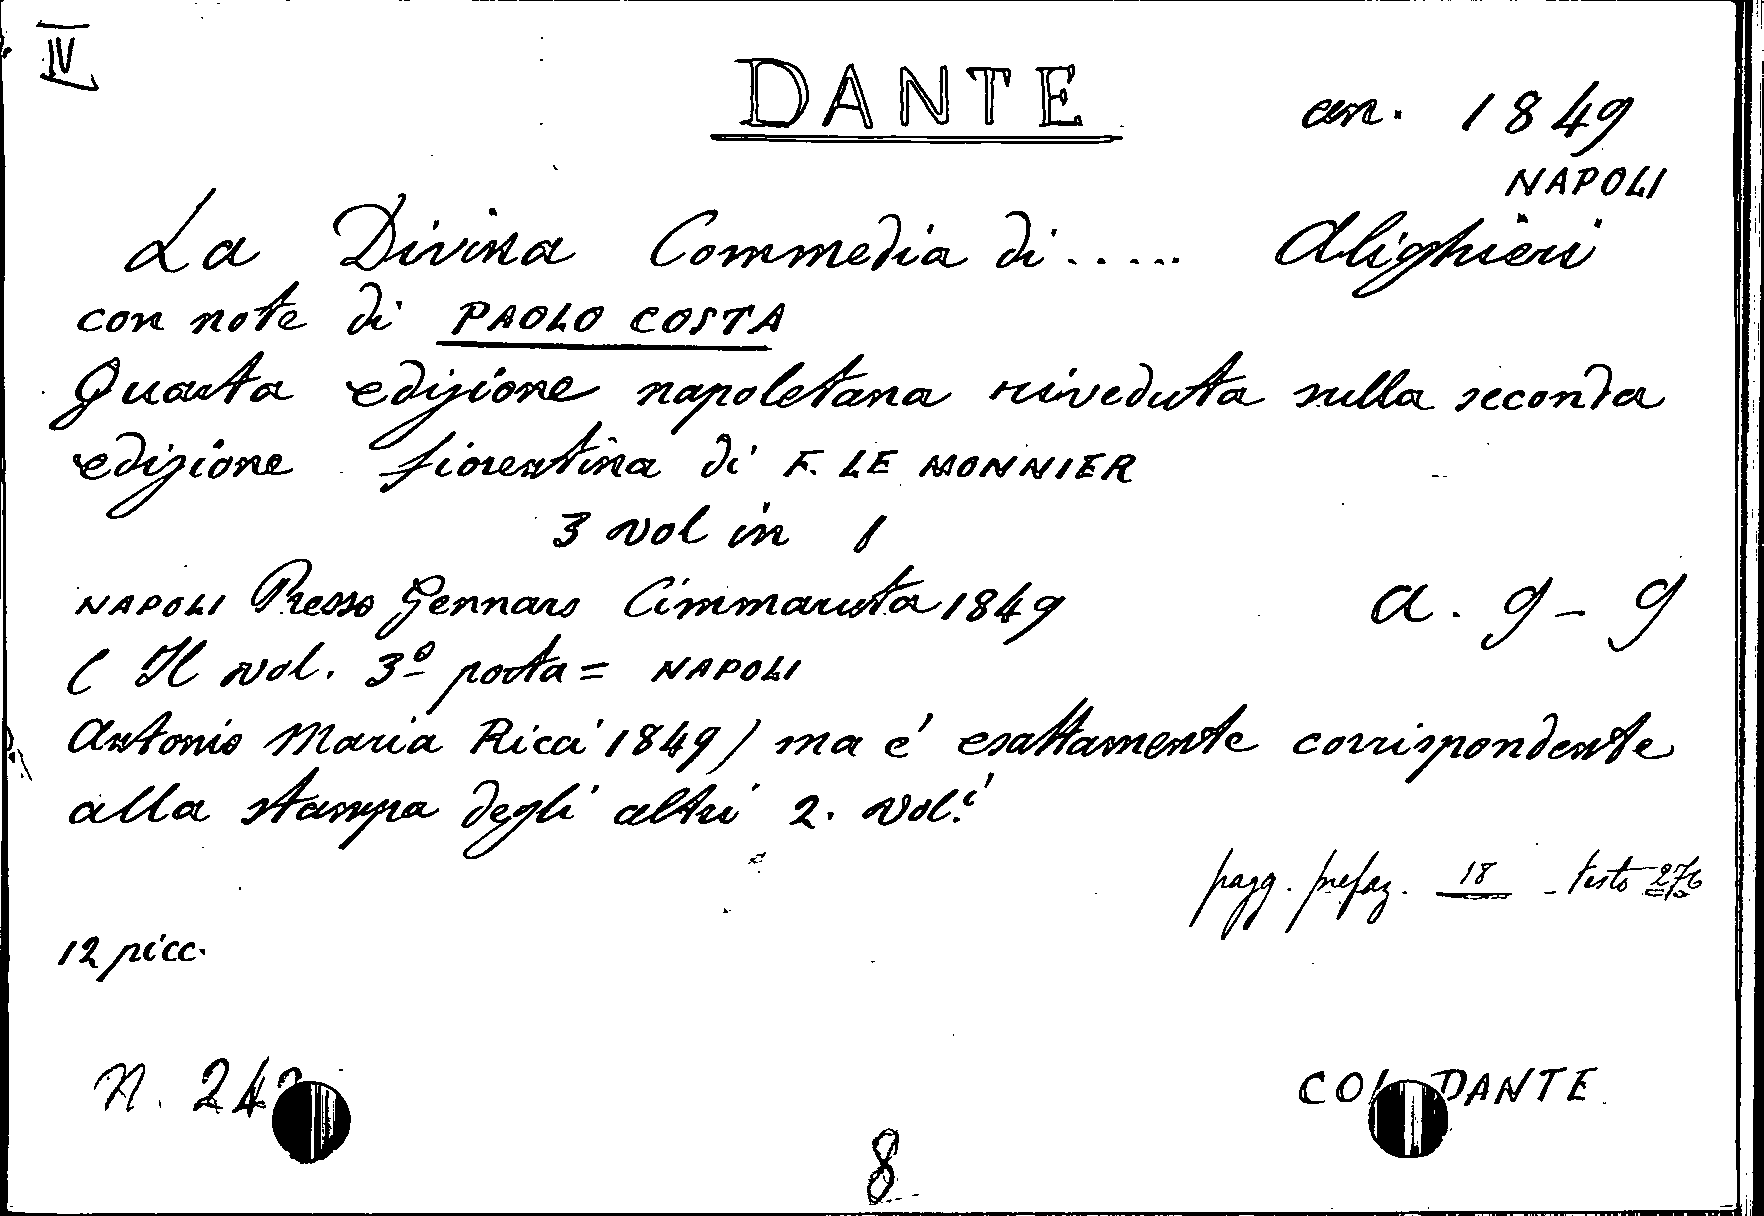 IV
DANTE
an. 1849
NAPOLI
La Divina Commedia di ..... Alighieri
con note di PAOLO COSTA
Quarta edizione napoletana riveduta sulla seconda
edizione fiorentina di F. LE MONNIER
3 vol in 1
NAPOLI Presso Gennaro Cimmaruta 1849
a. 9 - 9
( Il vol. 3º porta = NAPOLI
Antonio Maria Ricci 1849) ma é esattamente corrispondente
alla stampa degli altri 2. vol.i
pagg. prefaz. 18 - testo 276
12 picc.
N. 24
CO DANTE
8